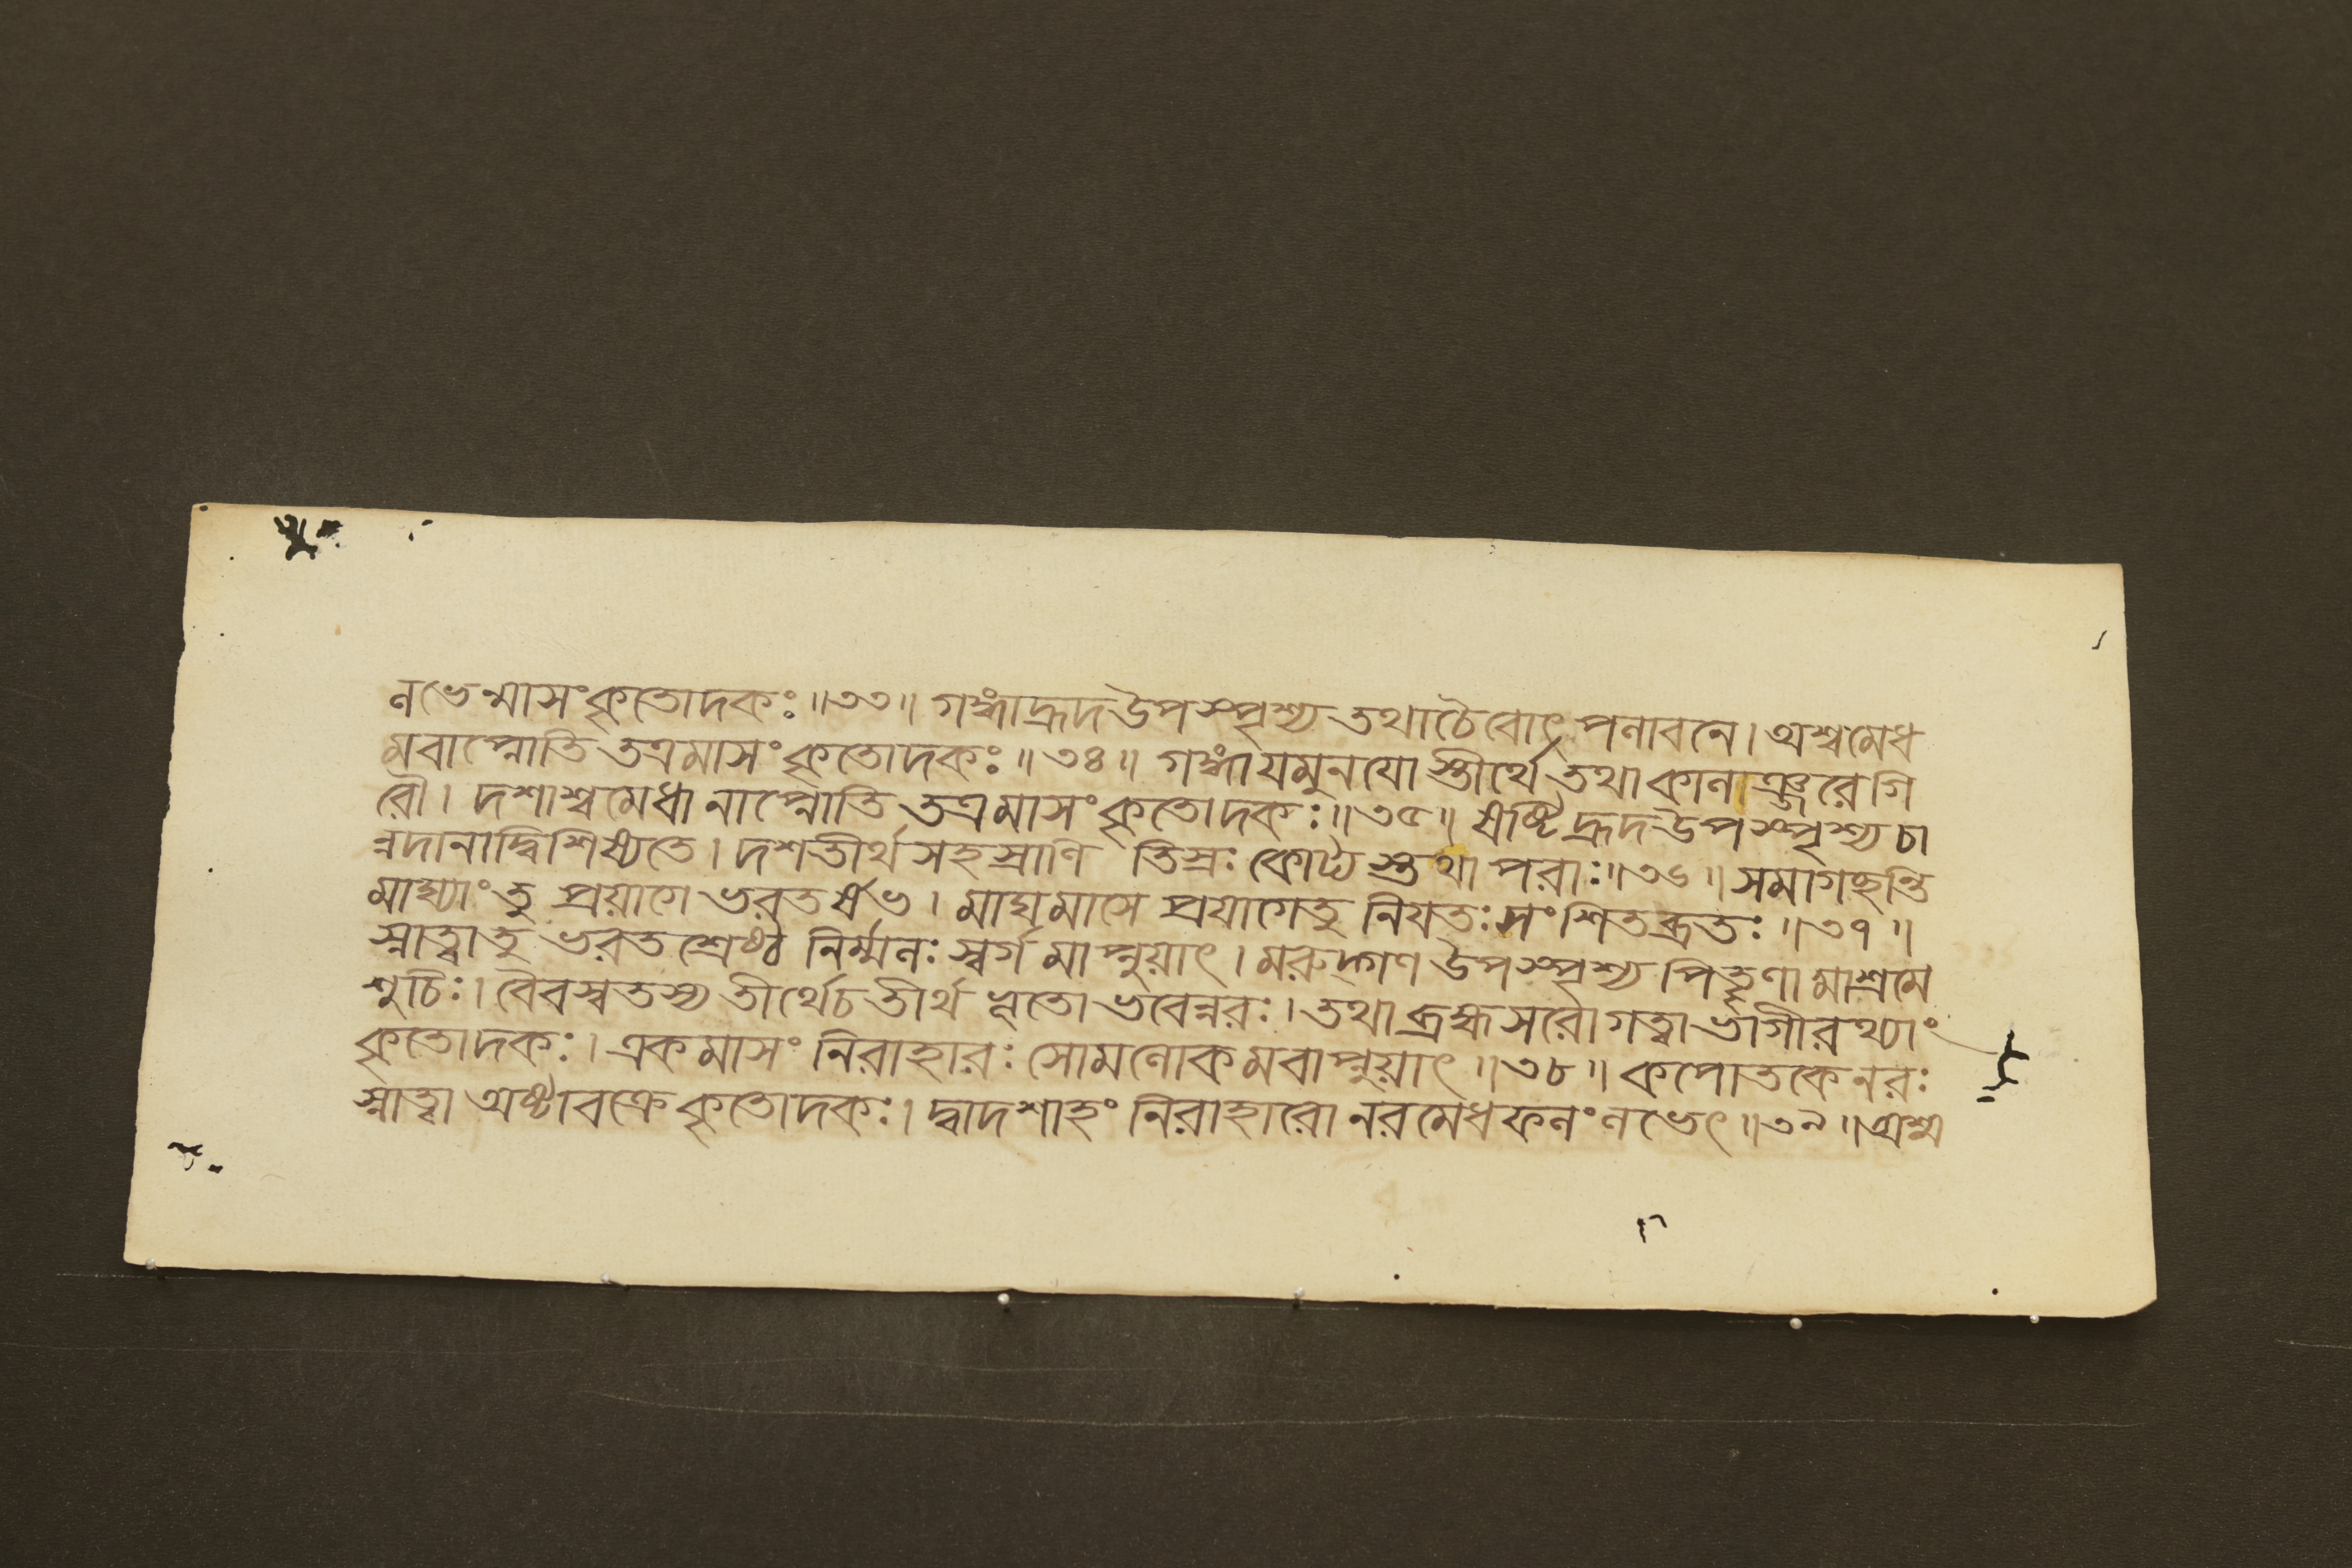 নভেন্মাসং কৃতোদকঃ॥৩৩॥ গঙ্গাহ্রদউপস্পৃশ্য তথাচৈবোৎপনাবনে। অশ্বমেধ
মবাপ্নোতি তত্রমাসং কৃতোদকঃ॥৩৪॥ গঙ্গাযমুনযোস্তীর্থে তথাকানাঞ্জরেগি
রৌ। দশাশ্বমেধানাপ্নোতি তত্রমাসং কৃতোদকঃ॥৩৫॥ ষষ্টিহ্রদউপস্পৃশ্য চা
ন্নদানাদ্বিশিষ্যতে। দশতীর্থসহস্রাণি তিস্রঃ কোট্যস্তথাপরাঃ॥৩৬॥ সমাগচ্ছন্তি
মাঘ্যাংতু প্রয়াগে ভরতর্ষভ। মাঘমাসে প্রযাগেতু নিযতঃ সংশিতব্রতঃ॥৩৭॥
স্নাত্বাতু ভরতশ্রেষ্ঠ নির্ম্মনঃ স্বর্গমাপ্নুয়াৎ। মরুদ্গণ উপস্পৃশ্য পিতৄণামাশ্রমে
শুচিঃ। বৈবস্বতস্য তীর্থেচ তীর্থভূতো ভবেন্নরঃ। তথাব্রহ্মসরোগত্বা ভাগীরথ্যাং
কৃতোদকঃ। একমাসং নিরাহারঃ সোমনোকমবাপ্নুয়াৎ॥৩৮॥ কপোতকেনরঃ
স্নাত্বা অষ্টাবক্রে কৃতোদকঃ। দ্বাদশাহং নিরাহারো নরমেধফনং নভেৎ॥৩৯॥